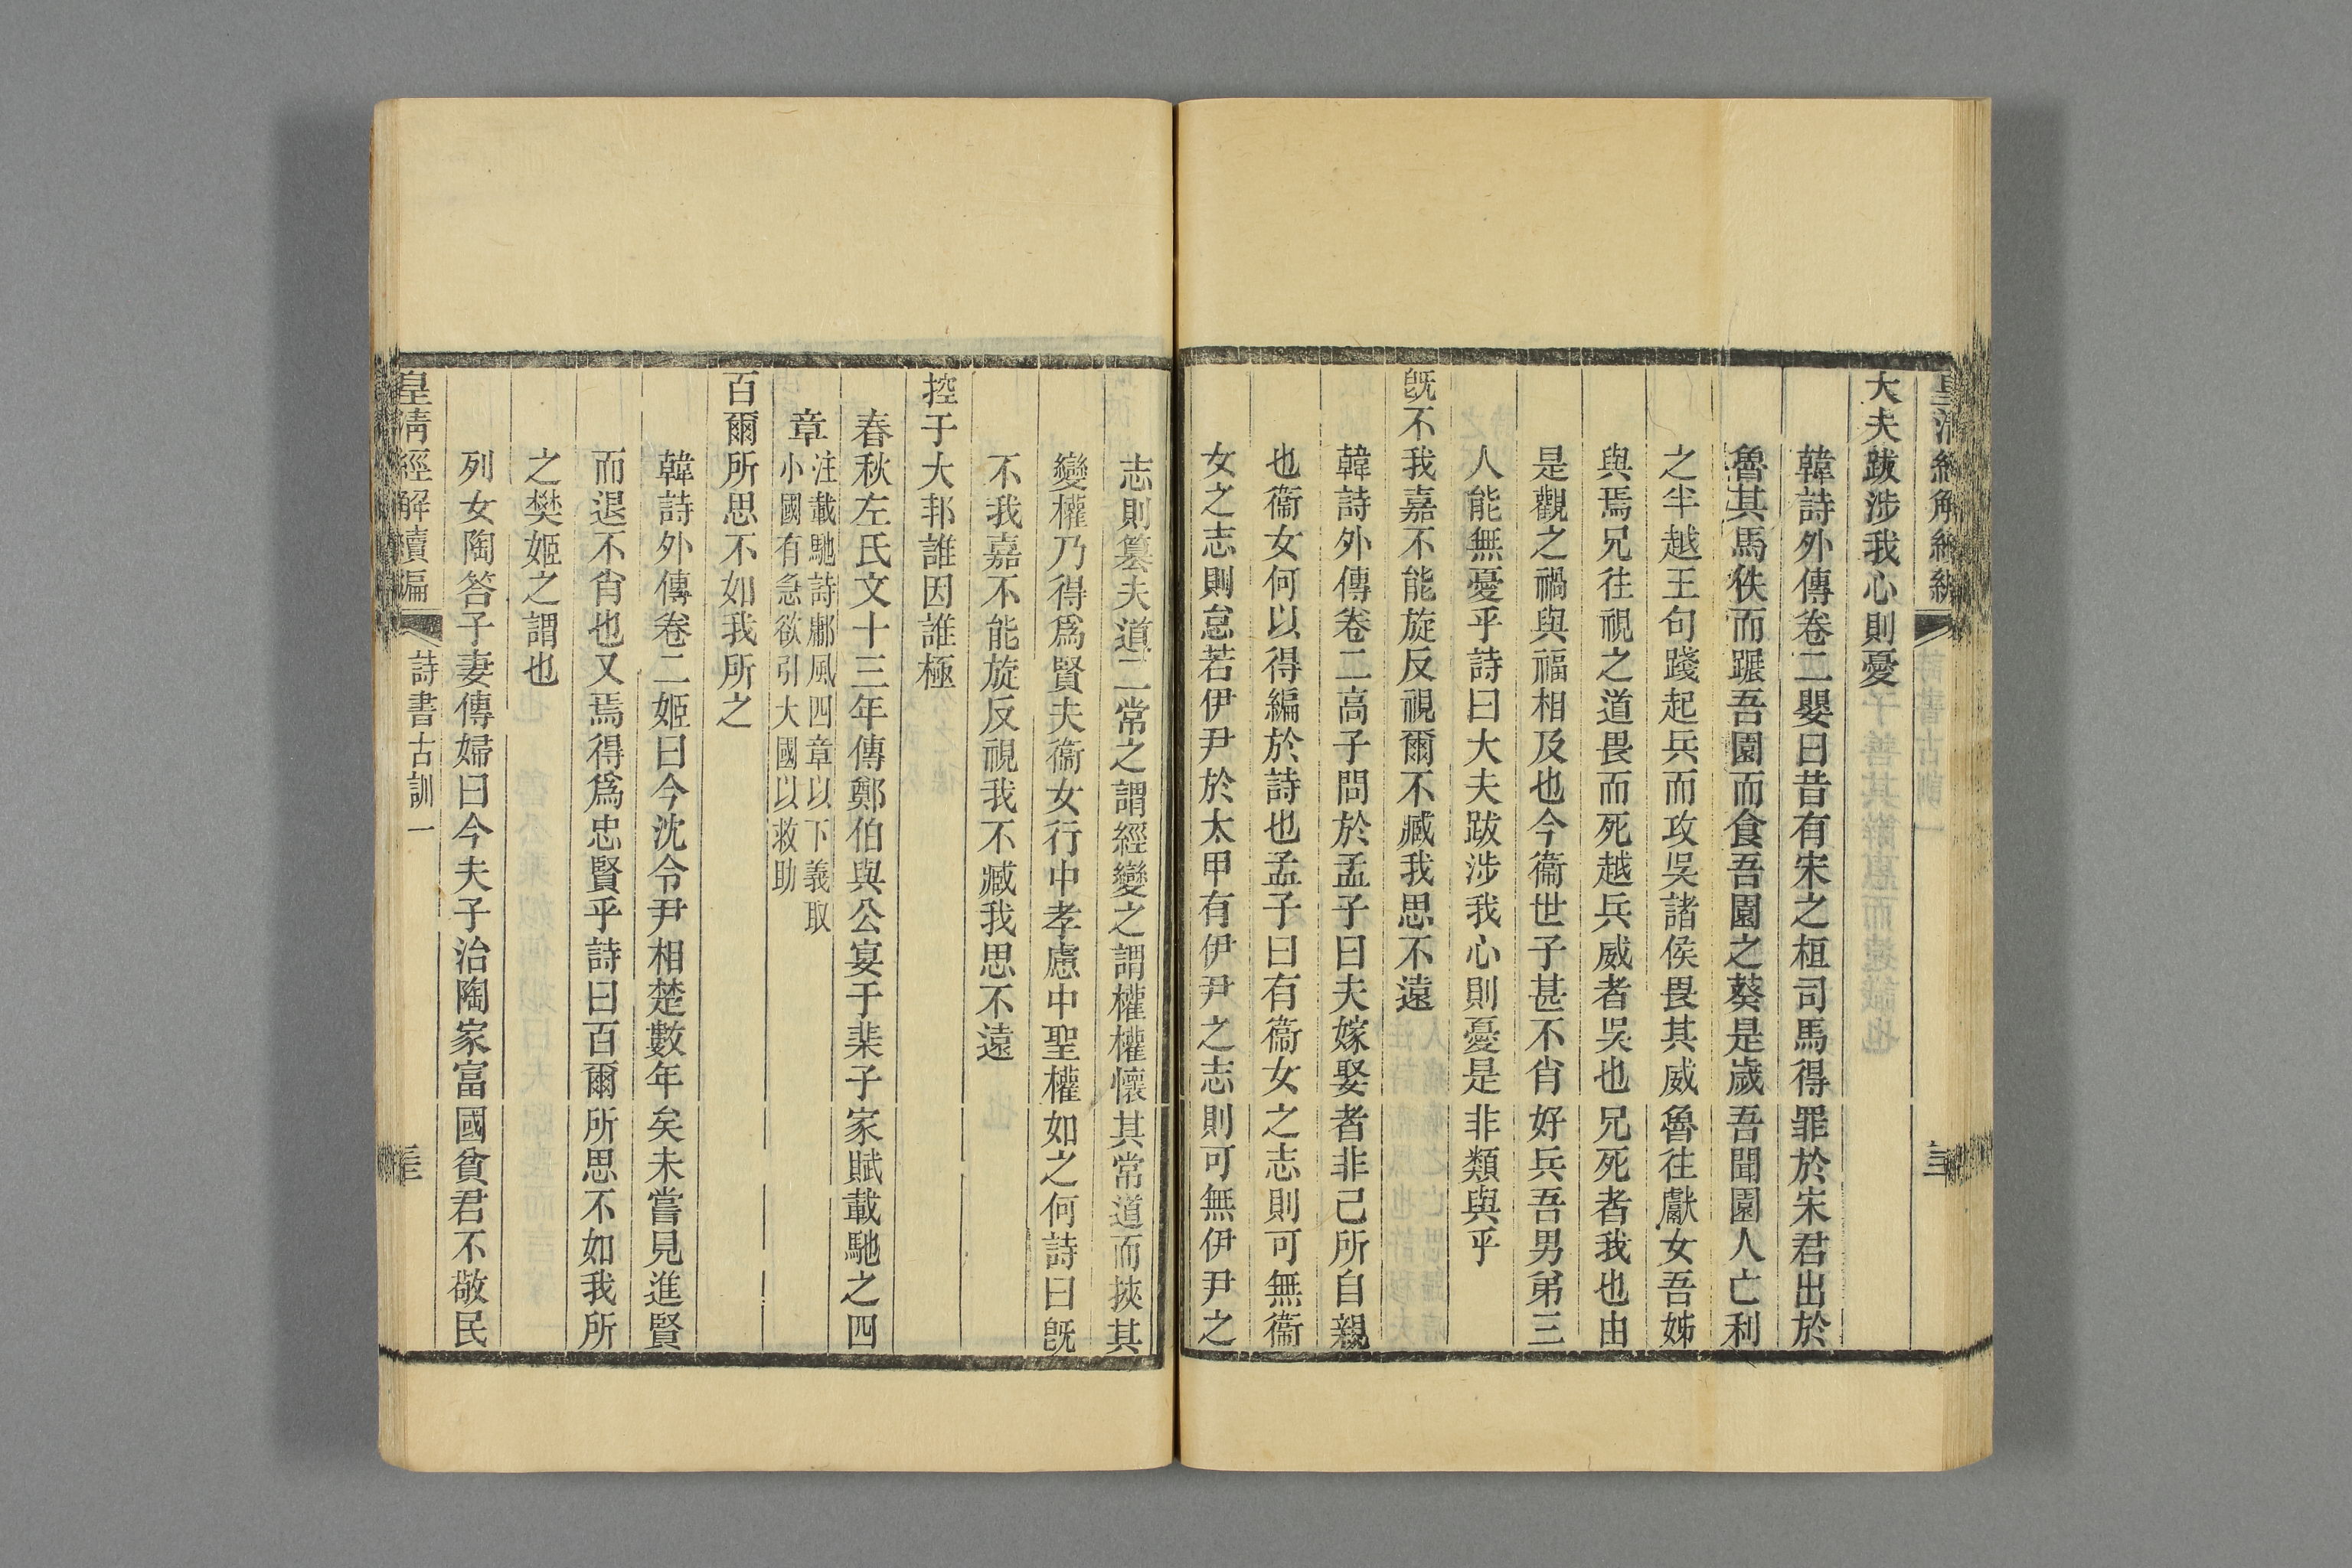 大夫跋涉我心則憂
韓詩外傳卷二嬰曰昔有宋之桓司馬得罪於宋君出於
魯其馬佚而蹍吾園而食吾園之葵是歲吾聞園人亡利
之半越王句踐起兵而攻吳諸侯畏其威魯往獻女吾姊
與焉兄往視之道畏而死越兵威者吳也兄死者我也由
是觀之禍與福相及也今衞世子甚不肖好兵吾男弟三
人能無憂乎詩曰大夫跋涉我心則憂是非類與乎
旣不我嘉不能旋反視爾不臧我思不遠
韓詩外傳卷二高子問於孟子曰夫嫁娶者非己所自親
也衞女何以得編於詩也孟子曰有衞女之志則可無衞
女之志則怠若伊尹於太甲有伊尹之志則可無伊尹之
志則篡夫道二常之謂經變之謂權權懷其常道而挾其
變權乃得爲賢夫衞女行中孝慮中聖權如之何詩曰旣
不我嘉不能旋反視我不臧我思不遠
控于大邦誰因誰極
春秋左氏文十三年傳鄭伯與公宴于棐子家賦載馳之四
章注載馳詩鄘風四章以下義取
小國有急欲引大國以救助
百爾所思不如我所之
韓詩外傳卷二姬曰今沈令尹相楚數年矣未嘗見進賢
而退不肖也又焉得爲忠賢乎詩曰百爾所思不如我所
之樊姬之謂也
列女陶荅子妻傳婦曰今夫子治陶家富國貧君不敬民
皇淸經解續編 詩書古訓一